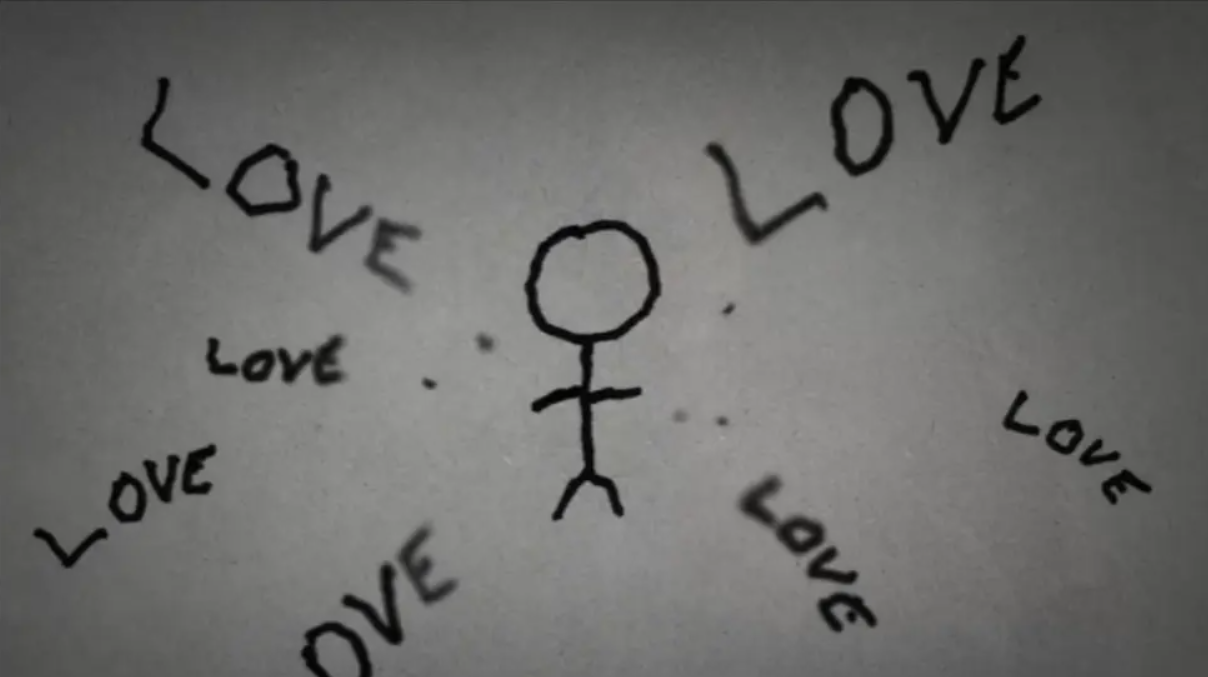 LOVE
LOVE
LOVE
LOVE
LOVE
LOVE
OVE